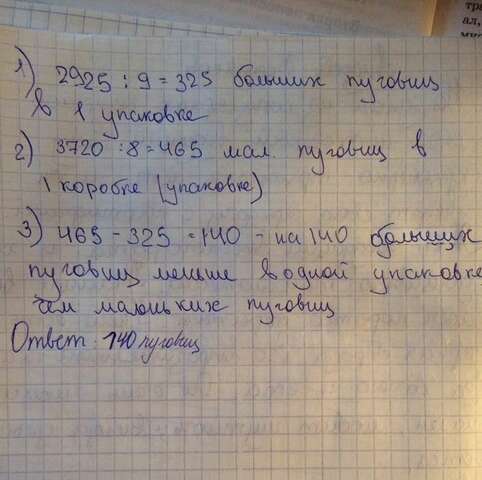 тра
ал,
1) 2925 : 9 = 325 больших пуговиц
в 1 упаковке
2) 3720 : 8 = 465 мал. пуговиц в
1 коробке (упаковке)
3) 465 - 325 = 140 - на 140 больших
пуговиц меньше в одной упаковке
чем маленьких пуговиц
Ответ: 140 пуговиц